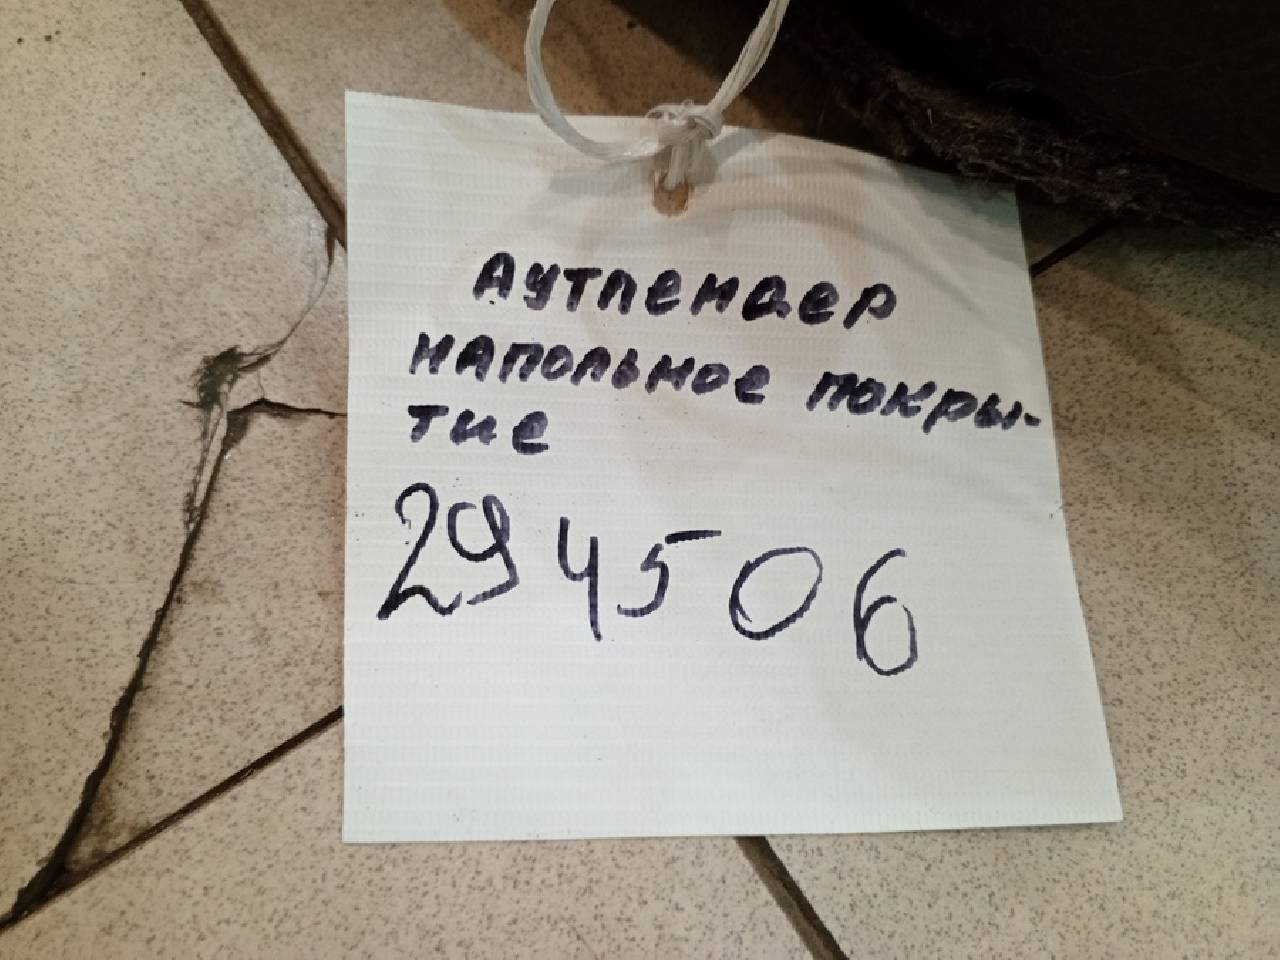 Аутлендер
напольное покры-
тие
294506